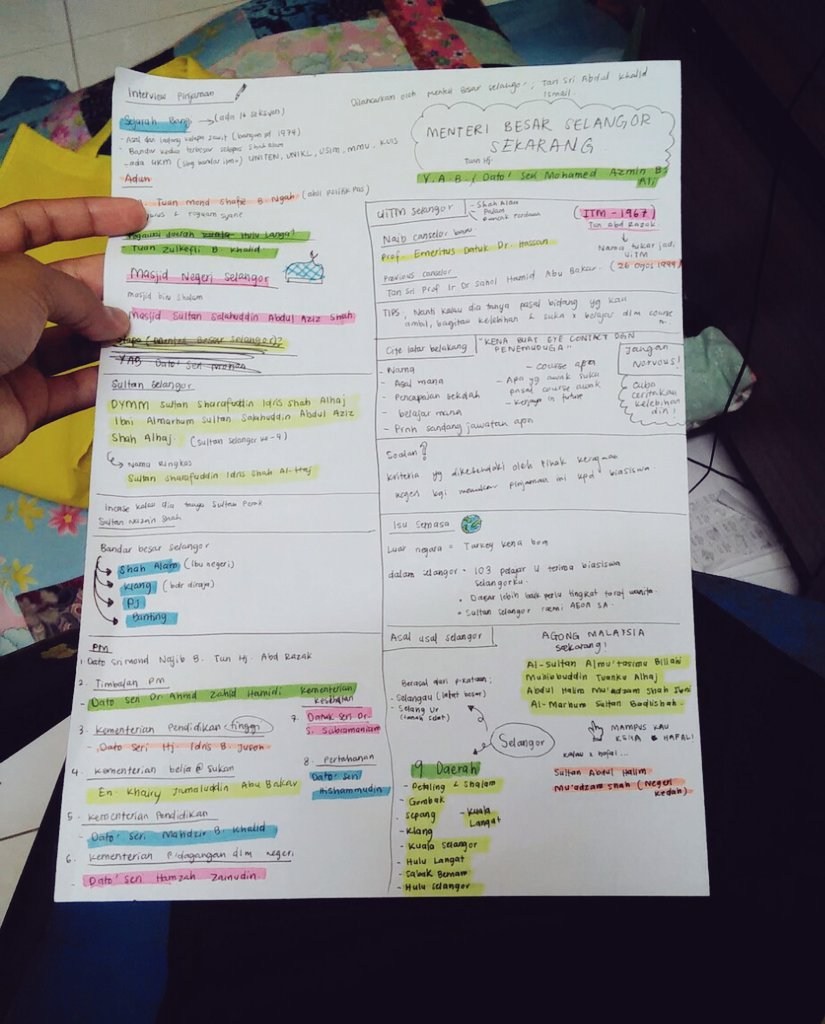 Interview Pinjaman
Dilancarkan oleh Menteri Besar Selangor, Tan Sri Abdul Khalid
Ismail.
Sejarah Bangi → (ada 16 seksyen)
- Asal dari ladang kelapa sawit (bangun pd 1974)
- Bandar kedua terbesar selepas Shah Alam
- ada UKM (sbg bandar ilmu) UNITEN, UNIKL, USIM, MMU, KUIS
Adun
Tuan Mohd Shafie B. Ngah (ahli politik Pas)
Pegawai daerah Hulu Langat
Tuan Zulkefli B. Khalid
Masjid Negeri Selangor
masjid biru Shalam
Masjid Sultan Salahuddin Abdul Aziz Shah
Siapa (Menteri Besar Selangor)?
YAB Dato' Seri Mohamed
Sultan Selangor
DYMM Sultan Sharafuddin Idris Shah Alhaj
Ibni Almarhum Sultan Salahuddin Abdul Aziz
Shah Alhaj. (Sultan Selangor ke-9)
↳ Nama Ringkas
Sultan Sharafuddin Idris Shah Al-Haj
Incase kalau dia tanya Sultan Perak
Sultan Nazrin Shah
Bandar besar Selangor
Shah Alam (Ibu negeri)
Klang (bdr diraja)
Pj
Banting
PM
1. Dato Sri Mohd Najib B. Tun Hj. Abd Razak
2. Timbalan PM
- Dato Seri Dr Ahmd Zahid Hamidi
3. Kementerian Pendidikan tinggi
- Dato Seri Hj. Idris B. Jusoh
4. Kementerian belia @ sukan
En. Khairy Jamaluddin Abu Bakar
5. Kementerian Pendidikan
- Dato' Seri Mahdzir B. Khalid
6. Kementerian P'dagangan dlm negeri
- Dato' Seri Hamzah Zainudin
Kementerian
Kesihatan
7. Datuk Seri Dr
S. Subramaniam
8. Pertahanan
Dato' Seri
Hishammudin
MENTERI BESAR SELANGOR
SEKARANG
Tuan Hj.
Y.A.B., Dato' Seri Mohamed Azmin B.
Ali
UiTM Selangor
- Shah Alam
(ITM - 1967)
Tan Abd Razak
↓
Nama tukar jadi
UiTM
(26 Ogos 1999)
Naib Canselor baru
Prof Emeritus Datuk Dr. Hassan
Previous canselor
Tan Sri Prof Ir Dr Sahol Hamid Abu Bakar.
TIPS, Nanti kalau dia tanya pasal bidang yg kau
ambil, bagitau kelebihan & suka x belajar dlm course
Cite latar belakang
"KENA BUAT EYE CONTACT DGN
PENEMUDUGA"
Jangan
Nervous!
- Nama
- Asal mana
- Pencapaian sekolah
- belajar mana
- Prnh sandang jawatan apa
- course apa
- Apa yg awak suka
pasal course awak
- Kerjaya in future
Cuba
ceritakan
kelebihan
diri!
Soalan?
Kriteria yg dikehendaki oleh pihak kerajaan
negeri bgi menawar pinjaman ini kpd biasiswa
Isu Semasa
Luar negara = Turkey kena bom
dalam selangor = 103 pelajar U terima biasiswa
Selangorku.
• Dasar lebih baik perlu tingkat taraf wanita.
• Sultan Selangor rasmi AEON SA.
Asal usal selangor
Berasal dari p'kataan:
- Selangau (lalat besar)
- Selang Ur
Selangor
9 Daerah
- Petaling & Shalam
- Gombak
- Sepang
- Klang
- Kuala Selangor
- Hulu Langat
- Sabak Bernam
- Hulu selangor
- Kuala
Langat
AGONG MALAYSIA
sekarang!
Al-Sultan Almu'tasimu Billahi
Muhibbuddin Tuanku Alhaj
Abdul Halim Mu'adzam Shah Ibni
Al-Marhum Sultan Badlishah.
MAMPUS KAU
HAFAL!
kalau x hafal...
Sultan Abdul Halim
Mu'adzam Shah (Negeri
Kedah)